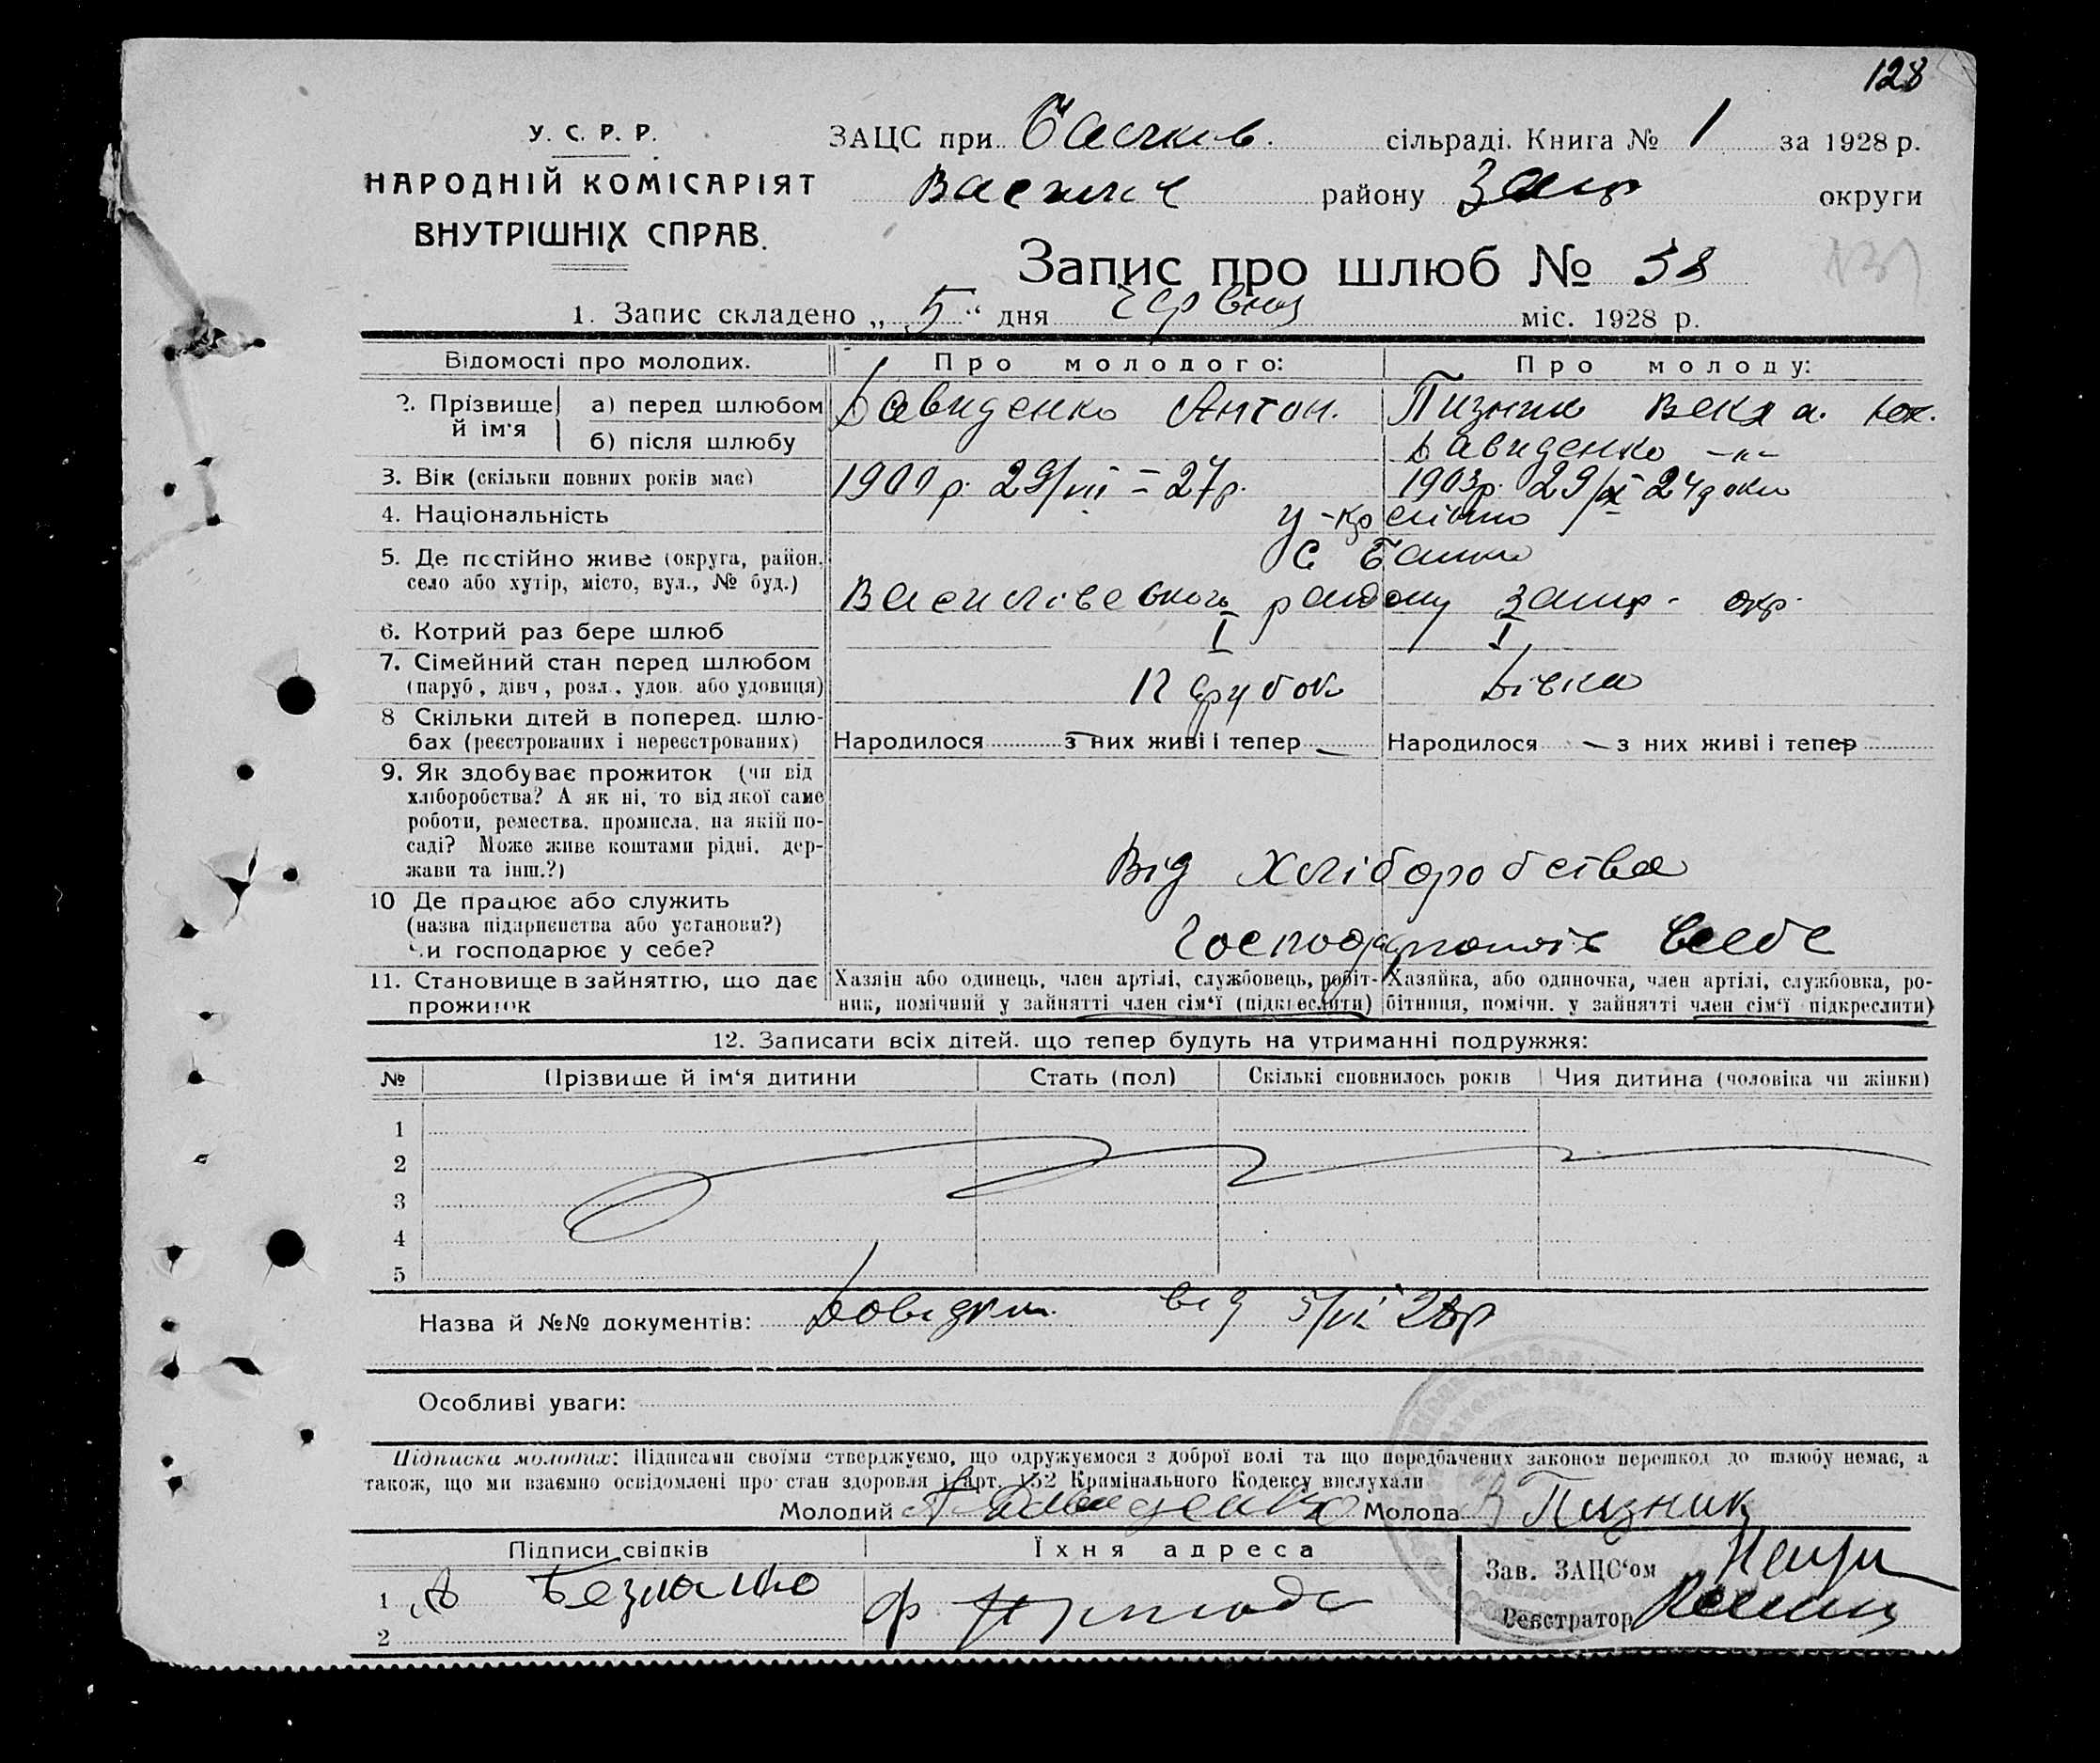 128
У. С. Р. Р.
НАРОДНІЙ КОМІСАРІЯТ
ВНУТРІШНІХ СПРАВ.
ЗАЦС при сільраді. Книга № 1 за 1928 р.
району Запр округи
Запис про шлюб № 38
1. Запис складено „ 5 “ дня Червня міс. 1928 р.
Відомості про молодих.
Про молодого:
Про молоду:
2. Прізвище й ім'я
а) перед шлюбом
Давиденко Антон.
Пизник Векла
б) після шлюбу
Давиденко -"-
3. Вік (скільки повних років має)
29/VII = 27р.
1903р. 29/ 24 роки
4. Національність
5. Де постійно живе (округа, район,
село або хутір, місто, вул., № буд.)
с
району Запр. окр.
6. Котрий раз бере шлюб
I
I
7. Сімейний стан перед шлюбом
(паруб, дівч, розл., удов. або удовиця)
Парубок
Дівка
8 Скільки дітей в поперед. шлю-
бах (реєстрованих і нереєстрованих)
Народилося з них живі і тепер —
Народилося — з них живі і тепер
9. Як здобуває прожиток (чи від
хліборобства? А як ні, то від якої саме
роботи, ремества, промисла, на якій по-
саді? Може живе коштами рідні, дер-
жави та інш.?)
Від Хліборобства
10 Де працює або служить
(назва підприєиства або установи?)
Чи господарює у себе?
11. Становище в зайняттю, що дає
прожиток
Хазяін або одинець, член артілі, службовець, робіт-
ник, помічний у зайнятті член сім'ї (підкреслити)
Хазяйка, або одиночка, член артілі, службовка, ро-
бітниця, помічн. у зайнятті член сім'ї підкреслити)
12. Записати всіх дітей. що тепер будуть на утриманні подружжя:
№ Прізвище й ім'я дитини Стать (пол) Скількі сповнилось років Чия дитина (чоловіка чи жінки)
1
2
3
4
5
Назва й №№ документів: Довідки від 5/VI 28р
Особливі уваги:
Підписка молодих: Підписами своїми стверджуємо, що одружуємося з доброї волі та що передбачених законом перешкод до шлюбу немає, а
також, що ми взаємно освідомлені про стан здоровля і арт. 152 Кримінального Кодексу вислухали
Молодий А Давиденко Молода В Пизник
Підписи свідків
Їхня адреса
Зав. ЗАЦС'ом
1
Реєстратор
2